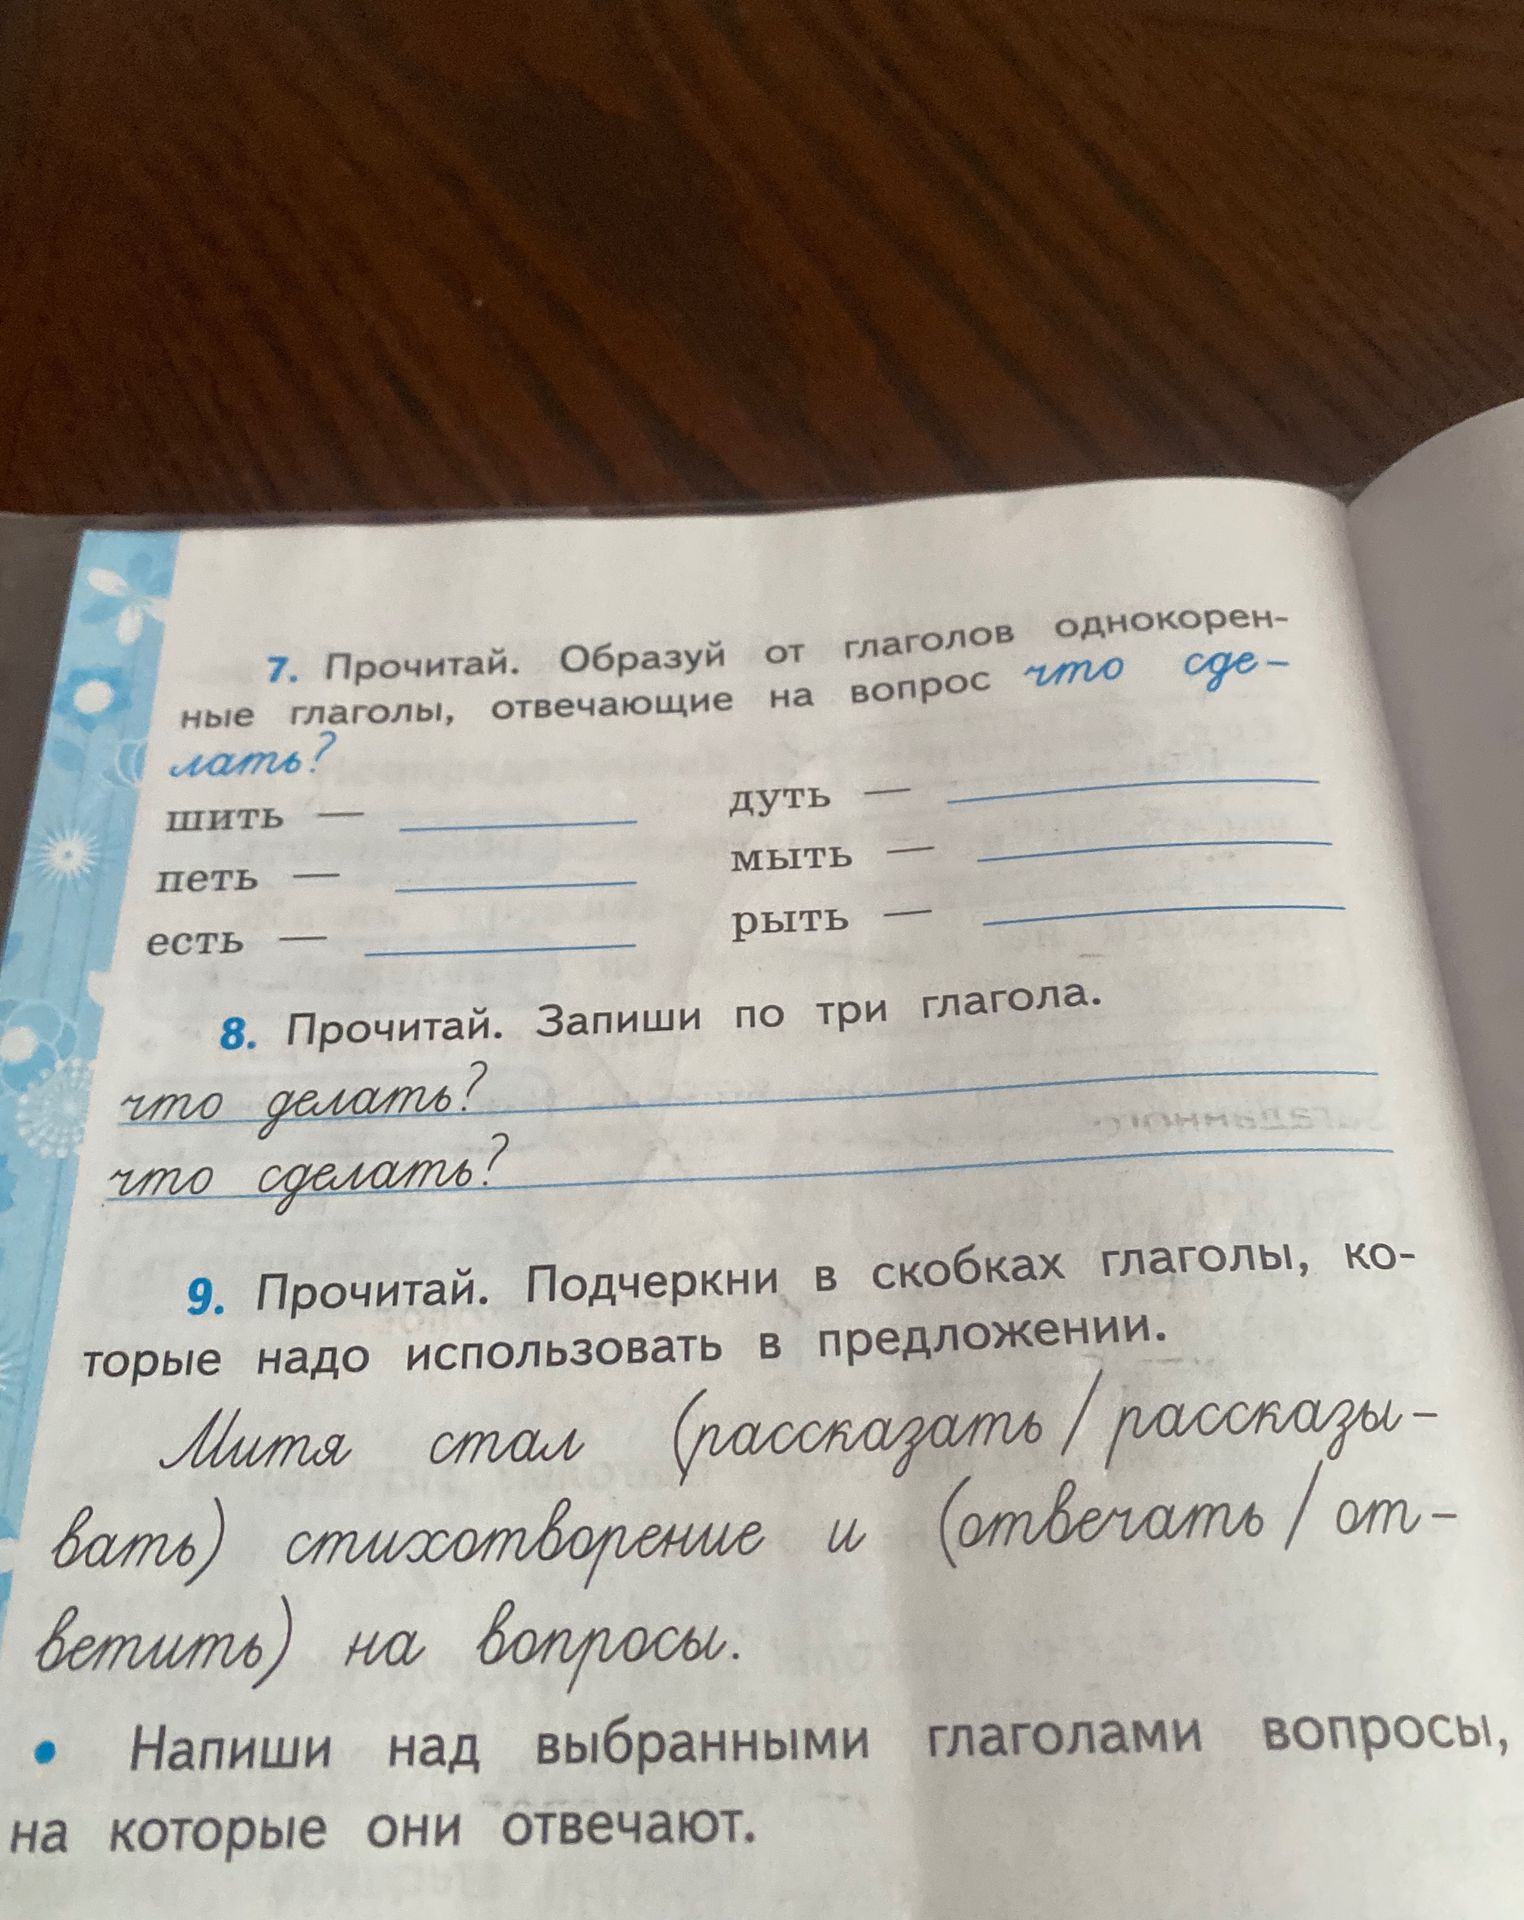 7. Прочитай. Образуй от глаголов однокорен-
ные глаголы, отвечающие на вопрос что сде-
лать?
шить — дуть —
петь — мыть —
есть — рыть —
8. Прочитай. Запиши по три глагола.
что делать?
что сделать?
9. Прочитай. Подчеркни в скобках глаголы, ко-
торые надо использовать в предложении.
Митя стал (рассказать / рассказы-
вать) стихотворение и (отвечать / от-
ветить) на вопросы.
• Напиши над выбранными глаголами вопросы,
на которые они отвечают.